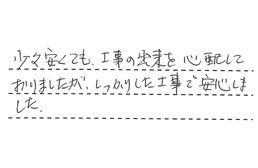 少々安くても、工事の出来を心配して
おりましたが、しっかりした工事で安心しま
した.